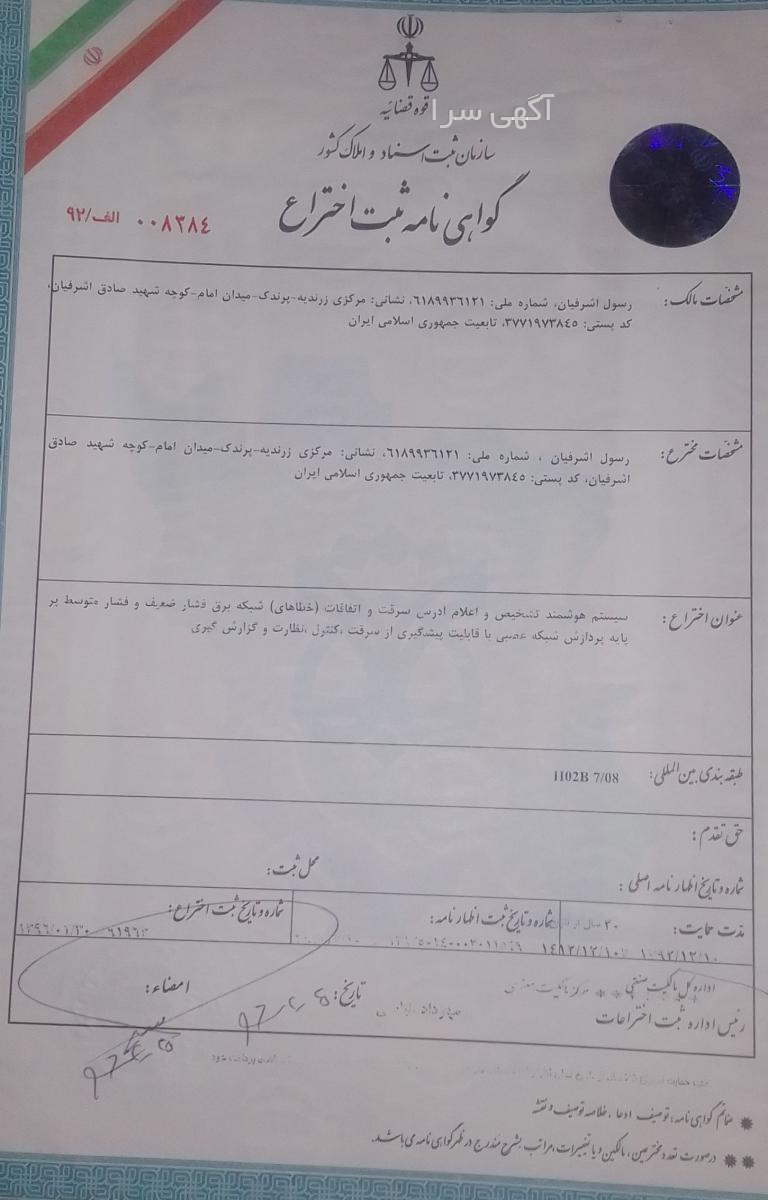 آگهی سرا
قوه قضائیه
سازمان ثبت اسناد و املاک کشور
گواهی نامه ثبت اختراع
۰۰۸۳۸٤ الف/۹۲
مشخصات مالک: رسول اشرفیان، شماره ملی: ٦۱۸۹۹۳٦۱۲۱، نشانی: مرکزی زرندیه-پرندک-میدان امام-کوچه شهید صادق اشرفیان،
کد پستی: ۳۷۷۱۹۷۳۸٤٥، تابعیت جمهوری اسلامی ایران
مشخصات مخترع: رسول اشرفیان ، شماره ملی: ٦۱۸۹۹۳٦۱۲۱، نشانی: مرکزی زرندیه-پرندک-میدان امام-کوچه شهید صادق
اشرفیان، کد پستی: ۳۷۷۱۹۷۳۸٤٥، تابعیت جمهوری اسلامی ایران
عنوان اختراع : سیستم هوشمند تشخیص و اعلام ادرس سرقت و اتفاقات (خطاهای) شبکه برق فشار ضعیف و فشار متوسط بر
پایه پردازش شبکه عصبی با قابلیت پیشگیری از سرقت ،کنترل ،نظارت و گزارش گیری
طبقه بندی بین المللی: H02B 7/08
حق تقدم :
شماره و تاریخ اظهارنامه اصلی :
محل ثبت:
مدت حمایت: ۲۰ سال از
شماره و تاریخ ثبت اظهارنامه:
شماره و تاریخ ثبت اختراع:
۱۳۹۲/۱۲/۱۰ ۱٤۱۲/۱۲/۱۰
۹۱۹٦۳ ۱۳۹٦/۰۱/۳۰
اداره کل مالکیت صنعتی ** مرکز مالکیت معنوی
رئیس اداره ثبت اختراعات
تاریخ:
امضاء:
* ضمائم گواهی نامه: توصیف ادعا ، خلاصه توصیف و نقشه
** درصورت تعدد مخترعین، مالکین و یا تغییرات، مراتب بشرح مندرج در ظهر گواهی نامه می باشد.